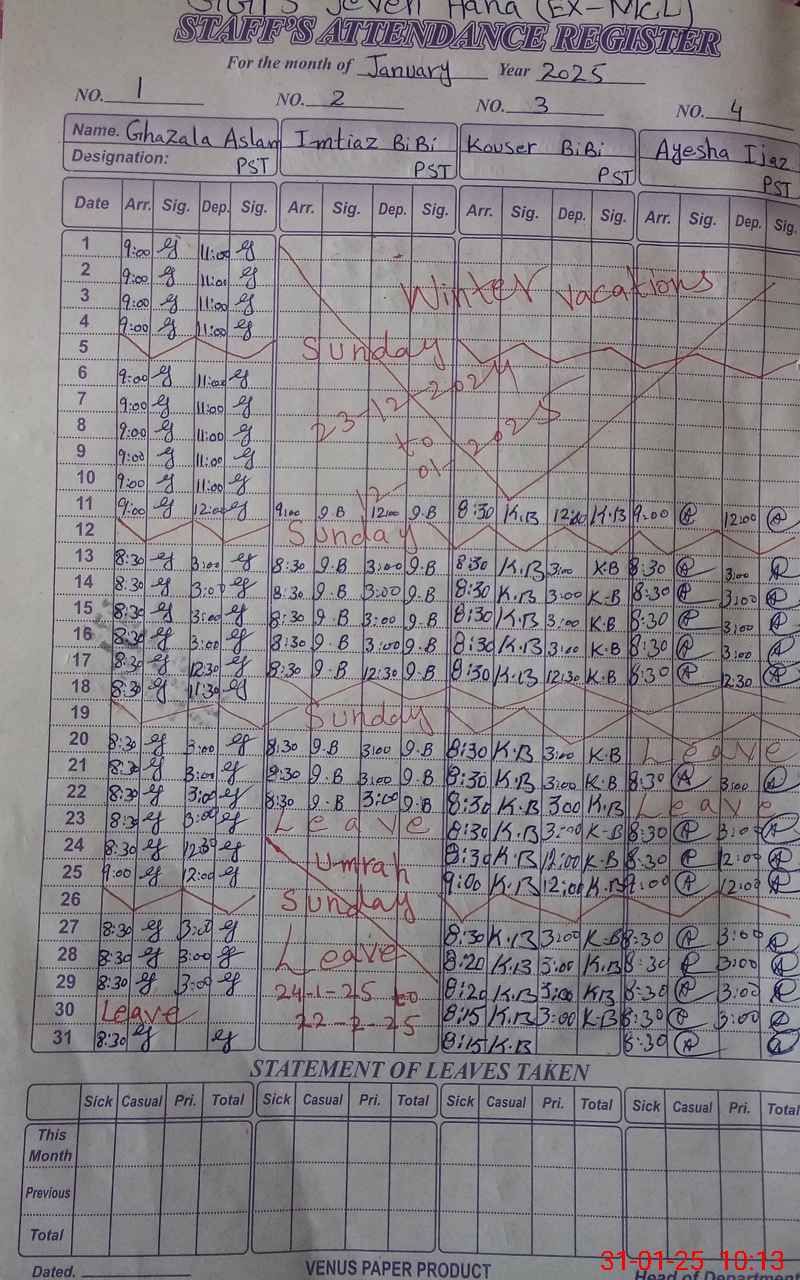 Seven Hana (EX-MCL)
STAFF'S ATTENDANCE REGISTER
For the month of January Year 2025
NO. 1 NO. 2 NO. 3 NO. 4
Name. Ghazala Aslam Imtiaz BiBi Kouser BiBi Ayesha Ijaz
Designation: PST PST PST PST
Date Arr. Sig. Dep. Sig. Arr. Sig. Dep. Sig. Arr. Sig. Dep. Sig. Arr. Sig. Dep. Sig.
1 9:00 11:00
2 9:00 11:00
3 9:00 11:00 Winter vacations
4 9:00 11:00
5 Sunday
6 9:00 11:00
7 9:00 11:00 23-12-2024
8 9:00 11:00 to
9 9:00 11:00 12-01-2025
10 9:00 11:00
11 9:00 12:00 9:00 9.B 12:00 9.B 8:30 K.B 12:00 K.B 9:00 A 12:00 A
12 Sunday
13 8:30 3:00 8:30 9.B 3:00 9.B 8:30 K.B 3:00 K.B 8:30 A 3:00 A
14 8:30 3:00 8:30 9.B 3:00 9.B 8:30 K.B 3:00 K.B 8:30 A 3:00 A
15 8:30 3:00 8:30 9.B 3:00 9.B 8:30 K.B 3:00 K.B 8:30 A 3:00 A
16 8:30 3:00 8:30 9.B 3:00 9.B 8:30 K.B 3:00 K.B 8:30 A 3:00 A
17 8:30 12:30 8:30 9.B 12:30 9.B 8:30 K.B 12:30 K.B 8:30 A 12:30 A
18 8:30 11:30
19 Sunday
20 8:30 3:00 8:30 9.B 3:00 9.B 8:30 K.B 3:00 K.B Leave
21 8:30 3:00 8:30 9.B 3:00 9.B 8:30 K.B 3:00 K.B 8:30 A 3:00 A
22 8:30 3:00 8:30 9.B 3:00 9.B 8:30 K.B 3:00 K.B Leave
23 8:30 3:00 Leave 8:30 K.B 3:00 K-B 8:30 A 3:00 A
24 8:30 12:30 Umrah 8:30 K.B 12:00 K-B 8:30 A 12:00 A
25 9:00 12:00 9:00 K.B 12:00 K.B 9:00 A 12:00 A
26 Sunday
27 8:30 3:00 8:30 K.B 3:00 K-B 8:30 A 3:00 A
28 8:30 3:00 Leave 8:20 K.B 3:00 K.B 8:30 A 3:00 A
29 8:30 3:00 24-1-25 to 8:20 K.B 3:00 KB 8:30 A 3:00 A
30 Leave 22-2-25 8:15 K.B 3:00 K-B 8:30 A 3:00 A
31 8:30 8:15 K.B 8:30 A A
STATEMENT OF LEAVES TAKEN
Sick Casual Pri. Total Sick Casual Pri. Total Sick Casual Pri. Total Sick Casual Pri. Total
This Month
Previous
Total
Dated. VENUS PAPER PRODUCT Head of Department
31-01-25 10:13